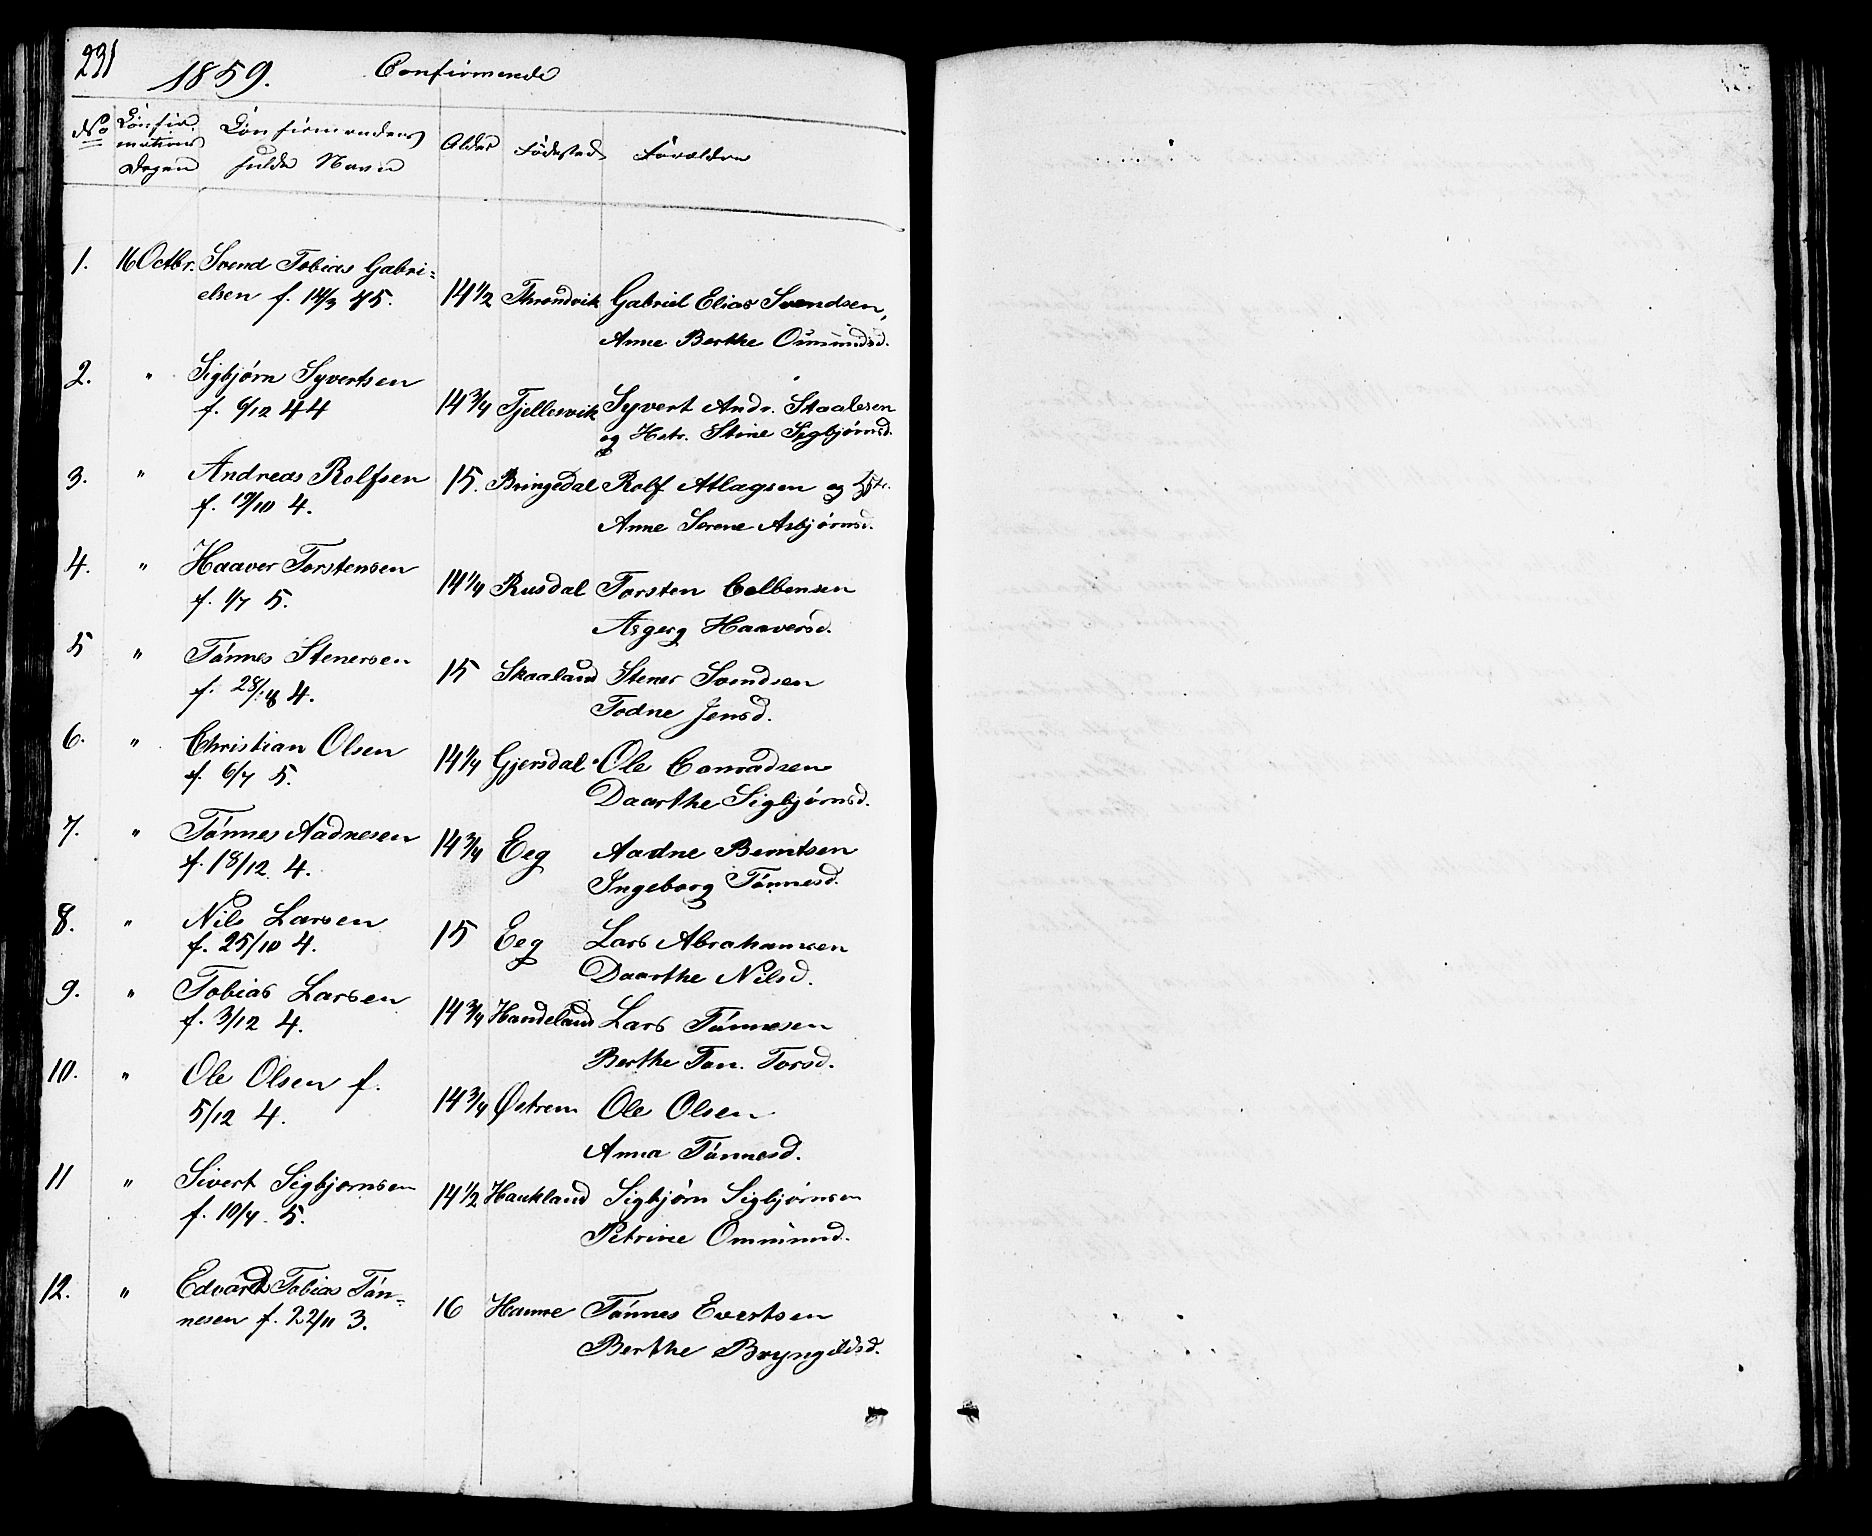 231
1859. Confirmende
No Confirmations Dagen Confirmandens fulde Navn Alder Fødested Forældre
1. 16 Octbr. Svend Tobias Gabri=
elsen f. 14/3 45. 14 1/2 Throndvik Gabriel Elias Svendsen,
Anne Berthe Osmundsd.
2. " Sigbjørn Syvertsen
f. 6/12 44 14 3/4 Fjellesvik Syvert Andr. Staalesen
og Hstr. Stine Sigbjørnsd.
3. " Andreas Rolfsen 15. Bringedal Rolf Atlagsen og Hstr.
f. 19/10 4. Anne Serene Asbjørnsd.
4. " Haaver Torstensen 14 1/4 Rusdal Torsten Colbensen
f. 1/7 5. Asgerg Haaversd.
5 " Tønnes Stenersen 15 Skaaland Stener Svendsen
f. 28/8 4. Todne Jensd.
6. " Christian Olsen 14 1/4 Gjersdal Ole Conradsen
f. 6/7 5. Daarthe Sigbjørnsd.
7. " Tønnes Aadnesen 14 3/4 Eeg Aadne Berntsen
f. 18/12 4. Ingeborg Tønnesd.
8. " Nils Larsen 15 Eeg Lars Abrahamsen
f. 25/10 4. Daarthe Nilsd.
9. " Tobias Larsen 14 3/4 Handeland Lars Tønnesen
f. 3/12 4. Berthe Tan. Torsd.
10. " Ole Olsen f. 14 3/4 Østrem Ole Olsen
5/12 4. Anna Tønnesd.
11 " Sivert Sigbjørnsen 14 1/2 Haukland Sigbjørn Sigbjørnsen
f. 10/4. 5. Petrine Ommund.
12. " Edvard Tobias Tøn=
nesen f. 22/11 3. 16 Hamre Tønnes Evertsen
Berthe Bryngeldsd.